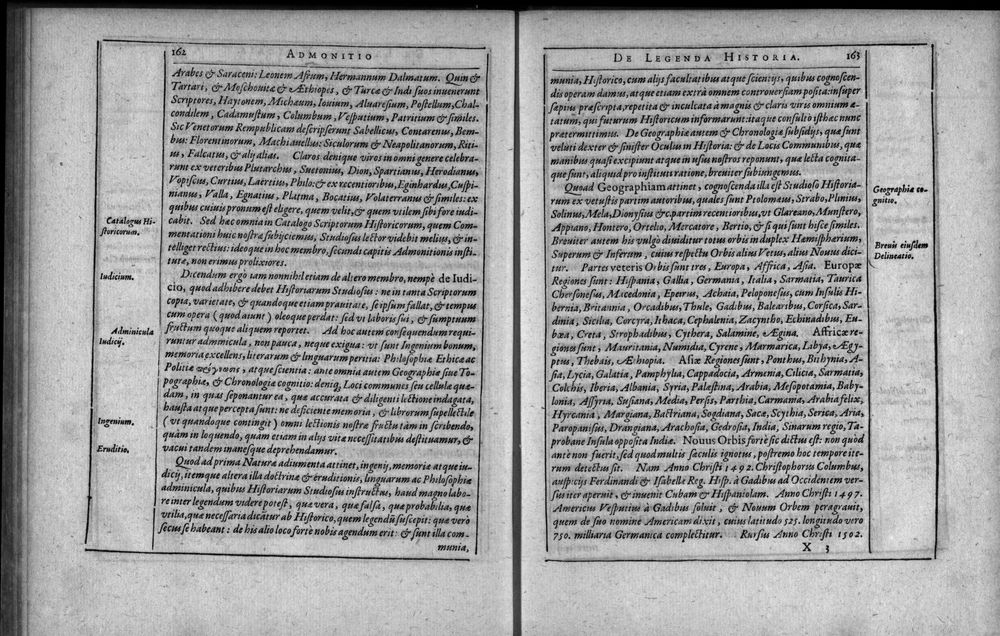 162
ADMONITIO
Arabes & Saraceni: Leonem Afrum, Hermannum Dalmatum. Quin &
Tartari, & Moschovitæ & Æthiopes, & Turcæ & Indi suos invenerunt
Scriptores, Haytonem, Michaum, Iovium, Aluaresium, Postellum, Chal-
condilem, Cadamustum, Columbum, Vesputium, Patritium & similes.
Sic Venetorum Rempublicam descripserunt Sabellicus, Contarenus, Bem-
bus: Florentinorum, Machiauellus: Siculorum & Neapolitanorum, Riti-
us, Falcatus, & alij alias. Claros denique viros in omni genere celebra-
runt ex veteribus Plutarchus, Suetonius, Dion, Spartianus, Herodianus,
Vopiscus, Curtius, Laertius, Philo: & ex recentioribus, Eginhardus, Cuspi-
nianus, Valla, Egnatius, Platina, Bocatius, Volaterranus & similes: ex
quibus cuiuis pronum est eligere, quem velit, & quem vtilem sibi fore iudi-
cabit. Sed hæc omnia in Catalogo Scriptorum Historicorum, quem Com-
mentationi huic nostræ subijciemus, Studiosus lector videbit melius, & in-
telliget rectius: ideoque in hoc membro, secundi capitis Admonitionis insti-
tutæ, non erimus prolixiores.
Catalogus Hi-
storicorum.
Dicendum ergò iam nonnihil etiam de altero membro, nempè de Iudi-
cio, quod adhibere debet Historiarum Studiosus: ne in tanta Scriptorum
copia, varietate, & quandoque etiam prauitate, se ipsum fallat, & tempus
cum opera (quod aiunt) oleoque perdat: sed vt liboris sui, & sumptuum
fructum quoque aliquem reportet. Ad hoc autem consequendum requi-
runtur adminicula, non pauca, neque exigua: vt sunt Ingenium bonum,
memoria excellens, literarum & linguarum peritia: Philosophiæ Ethicæ ac
Politiæ γνώρισις, atque scientia: ante omnia autem Geographiæ siue To-
pographiæ, & Chronologiæ cognitio: deniq; Loci communes seu cellulæ quæ-
dam, in quas seponantur ea, quæ accurata & diligenti lectione indagata,
hausta atque percepta sunt: ne deficiente memoria, & librorum supellectile
(vt quandoque contingit) omni lectionis nostræ fructu tàm in scribendo,
quàm in loquendo, quam etiam in alijs vitæ necessitatibus destituamur, &
vacui tandem inanesque deprehendamur.
Iudicium.
Adminicula
Iudicij.
Ingenium.
Eruditio.
Quod ad prima Naturæ adiumenta attinet, ingenij, memoriæ atque iu-
dicij, itemque altera illa doctrinæ & eruditionis, linguarum ac Philosophiæ
adminicula, quibus Historiarum Studiosus instructus, haud magno labo-
re inter legendum videre potest, quæ vera, quæ falsa, quæ probabilia, quæ
vtilia, quæ necessaria dicatur ab Historico, quem legendū suscepit: quæ verò
secus se habeant: de his alio loco fortè nobis agendum erit: & sunt illa com-
munia,
DE LEGENDA HISTORIA.
163
munia, Historico, cum alijs facultatibus atque scientijs, quibus cognoscen-
dis operam damus, atque etiam extrà omnem controversiam posita: insuper
sæpius præscripta, repetita & inculcata à magnis & claris viris omnium æ-
tatum, qui futurum Historicum informarunt: itaque consultò isthæc nunc
prætermittimus. De Geographiæ autem & Chronologiæ subsidijs, quæ sunt
veluti dexter & sinister Oculus in Historia: & de Locis Communibus, quæ
manibus quasi excipiunt atque in usus nostros reponunt, quæ lecta cognita-
que sunt, aliquid pro instituti ratione, breuiter subiungemus.
Quoad Geographiam attinet, cognoscenda illa est Studioso Historia-
rum ex vetustis partim autoribus, quales sunt Ptolomæus, Strabo, Plinius,
Solinus, Mela, Dionysius &c. partim recentioribus, vt Glareano, Munstero,
Appiano, Hontero, Ortelio, Mercatore, Bertio, & si qui sunt hisce similes.
Breuiter autem his vulgò diuiditur totus orbis in duplex Hemisphærium,
Superum & Inferum, cuius respectu Orbis alius Vetus, alius Nouus dici-
tur. Partes veteris Orbis sunt tres, Europa, Affrica, Asia. Europæ
Regiones sunt: Hispania, Gallia, Germania, Italia, Sarmatia, Taurica
Chersonesus, Macedonia, Epeirus, Achaia, Peloponesus, cum Insulis Hi-
bernia, Britannia, Orcadibus, Thule, Gadibus, Balearibus, Corsica, Sar-
dinia, Sicilia, Corcyra, Ithaca, Cephalenia, Zacyntho, Echinadibus, Eu-
bœa, Creta, Strophadibus, Cythera, Salamine, Ægina. Affricæ re-
giones sunt, Mauritania, Numidia, Cyrene, Marmarica, Libya, Ægy-
ptus, Thebais, Æthiopia. Asiæ Regiones sunt, Ponthus, Bithynia, A-
sia, Lycia, Galatia, Pamphylia, Cappadocia, Armenia, Cilicia, Sarmatia,
Colchis, Iberia, Albania, Syria, Palæstina, Arabia, Mesopotamia, Baby-
lonia, Assyria, Susiana, Media, Persis, Parthia, Carmania, Arabia felix,
Hyrcania, Margiana, Bactriana, Sogdiana, Sacæ, Scythia, Serica, Aria,
Paropanisus, Drangiana, Arachosia, Gedrosia, India, Sinarum regio, Ta-
probane Insula opposita Indiæ. Nouus Orbis fortè sic dictus est: non quòd
antè non fuerit, sed quod multis sæculis ignotus, postremo hoc tempore ite-
rum detectus sit. Nam Anno Christi 1492. Christophorus Columbus,
auspicijs Ferdinandi & Isabellæ Reg. Hisp. à Gadibus ad Occidentem ver-
sus iter aperuit, & inuenit Cubam & Hispaniolam. Anno Christi 1497.
Americus Vesputius à Gadibus soluit, & Nouum Orbem peragrauit,
quem de suo nomine Americam dixit, cuius latitudo 525. longitudo vero
750. milliaria Germanica complectitur. Rursus Anno Christi 1502.
Geographiæ co-
gnitio.
Breuis eiusdem
Delineatio.
X 3